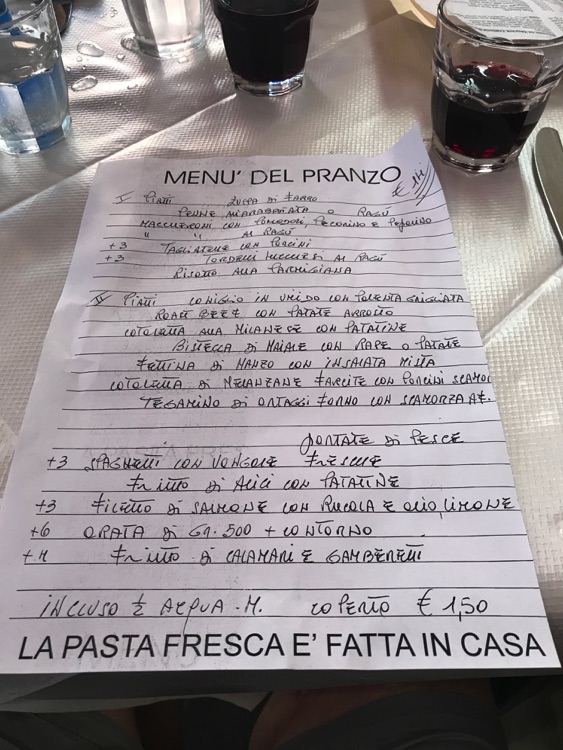 MENU' DEL PRANZO
€ 14
I PIATTI ZUPPA DI FARRO
PENNE ALL'ARRABBIATA O RAGÙ
MACCHERONI CON POMODORI, PECORINO E PEPERINO
" " AL RAGÙ
+3 TAGLIATELLE CON PORCINI
+3 TORDELLI LUCCHESI AL RAGÙ
RISOTTO ALLA PARMIGIANA
II PIATTI CONIGLIO IN UMIDO CON POLENTA GRIGLIATA
ROAST BEEF CON PATATE ARROSTO
COTOLETTA ALLA MILANESE CON PATATINE
BISTECCA DI MAIALE CON RAPE O PATATE
FETTINA DI MANZO CON INSALATA MISTA
COTOLETTA DI MELANZANE FARCITE CON PORCINI SCAMOR
TEGAMINO DI ORTAGGI FORNO CON SCAMORZA AF.
PORTATE DI PESCE
+3 SPAGHETTI CON VONGOLE FRESCHE
FRITTO DI ALICI CON PATATINE
+3 FILETTO DI SALMONE CON RUCOLA E OLIO, LIMONE
+6 ORATA DI GR. 500 + CONTORNO
+4 FRITTO DI CALAMARI E GAMBERETTI
INCLUSO ½ ACQUA M. COPERTO € 1,50
LA PASTA FRESCA E' FATTA IN CASA